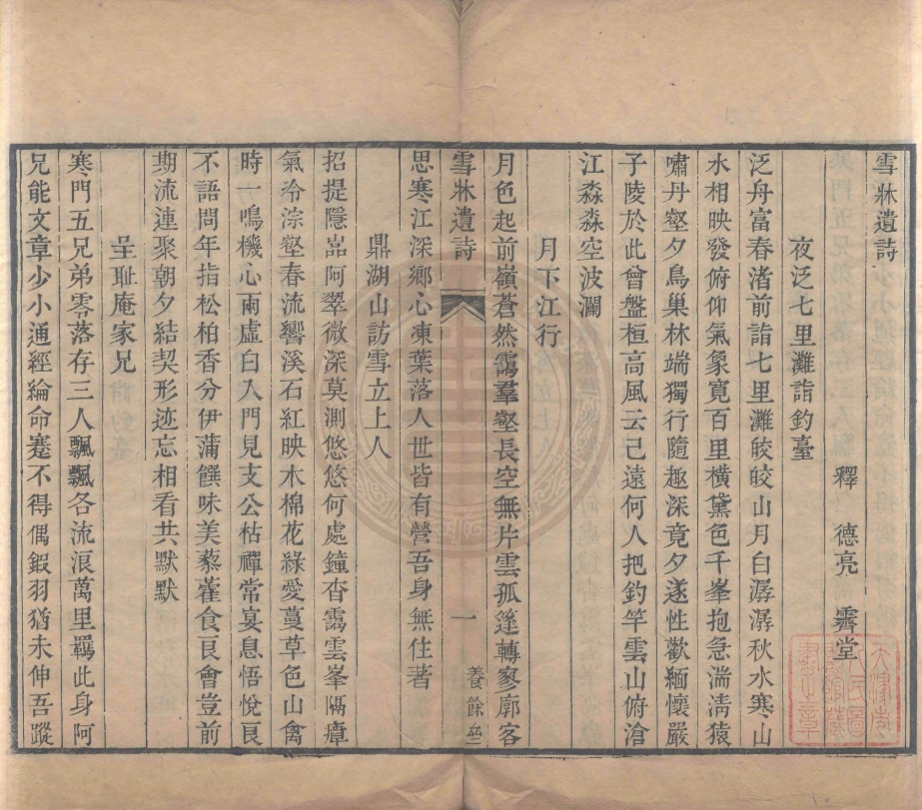 雪牀遺詩
釋　德亮　霽堂
夜泛七里灘詣釣臺
泛舟富春渚前詣七里灘皎皎山月白潺潺秋水寒山
水相映發俯仰氣象寬百里橫黛色千峯抱急湍淸猿
嘯丹壑夕鳥巢林端獨行隨趣深竟夕遂性歡緬懷嚴
子陵於此曾盤桓高風云已遠何人把釣竿雲山俯滄
江淼淼空波瀾
月下江行
月色起前嶺蒼然靄羣壑長空無片雲孤篷轉寥廓客
雪牀遺詩
一
養餘齋
思寒江深鄉心凍葉落人世皆有營吾身無住著
鼎湖山訪雪立上人
招提隱嵒阿翠微深莫測悠悠何處鐘杳靄雲峯隔瘴
氣冷淙壑春流響溪石紅映木棉花綠愛蔓草色山禽
時一鳴機心兩虛白入門見支公枯禪常宴息悟悅良
不語問年指松柏香分伊蒲饌味美藜藿食良會豈前
期流連聚朝夕結契形迹忘相看共默默
呈耻庵家兄
寒門五兄弟零落存三人飄飄各流浪萬里羈此身阿
兄能文章少小通經綸命蹇不得偶鍛羽猶未伸吾蹤